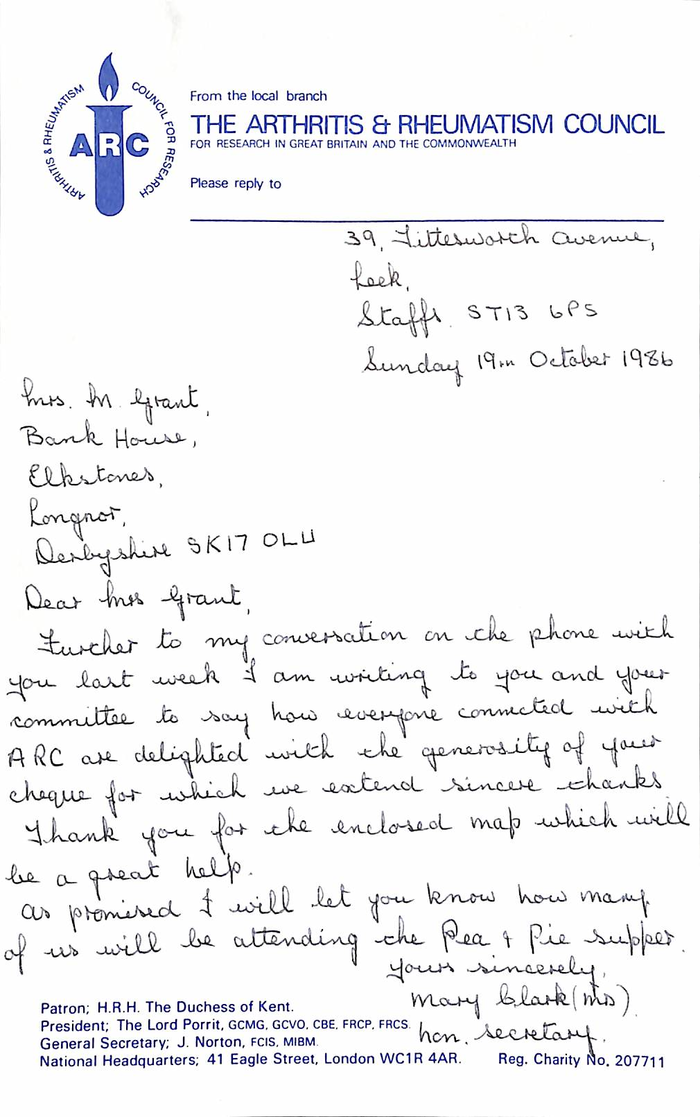 ARTHRITIS & RHEUMATISM COUNCIL FOR RESEARCH
ARC
From the local branch
THE ARTHRITIS & RHEUMATISM COUNCIL
FOR RESEARCH IN GREAT BRITAIN AND THE COMMONWEALTH
Please reply to
39, Tittesworth Avenue,
Leek,
Staffs. ST13 6PS
Sunday 19th October 1986
Mrs. M. Grant,
Bank House,
Elkstones,
Longnor,
Derbyshire SK17 0LU
Dear Mrs Grant,
Further to my conversation on the phone with
you last week I am writing to you and your
committee to say how everyone connected with
ARC are delighted with the generosity of your
cheque for which we extend sincere thanks.
Thank you for the enclosed map which will
be a great help.
As promised I will let you know how many
of us will be attending the Pea & Pie supper.
Yours sincerely,
Mary Clark (Mrs)
hon. secretary.
Patron; H.R.H. The Duchess of Kent.
President; The Lord Porrit, GCMG, GCVO, CBE, FRCP, FRCS.
General Secretary; J. Norton, FCIS, MIBM.
National Headquarters; 41 Eagle Street, London WC1R 4AR. Reg. Charity No. 207711